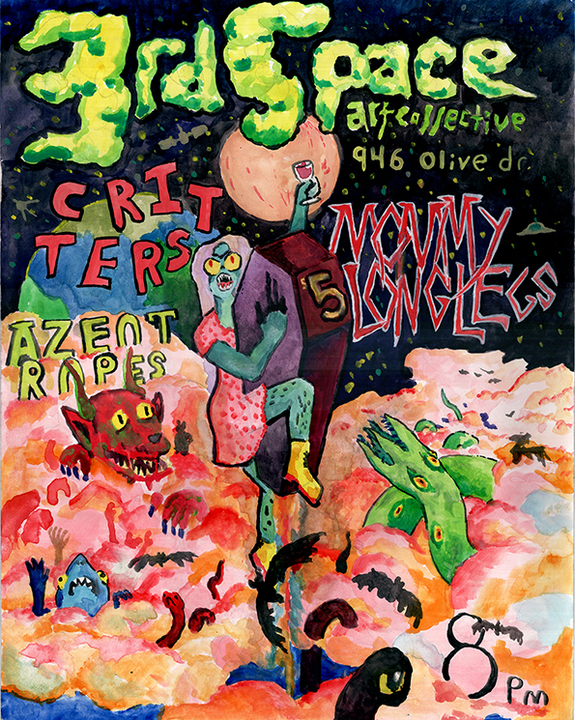 3rd Space
art collective
946 olive dr.
CRIT
TERS
MOMMY
LONGLEGS
$5
AZEOT
ROPES
8
PM